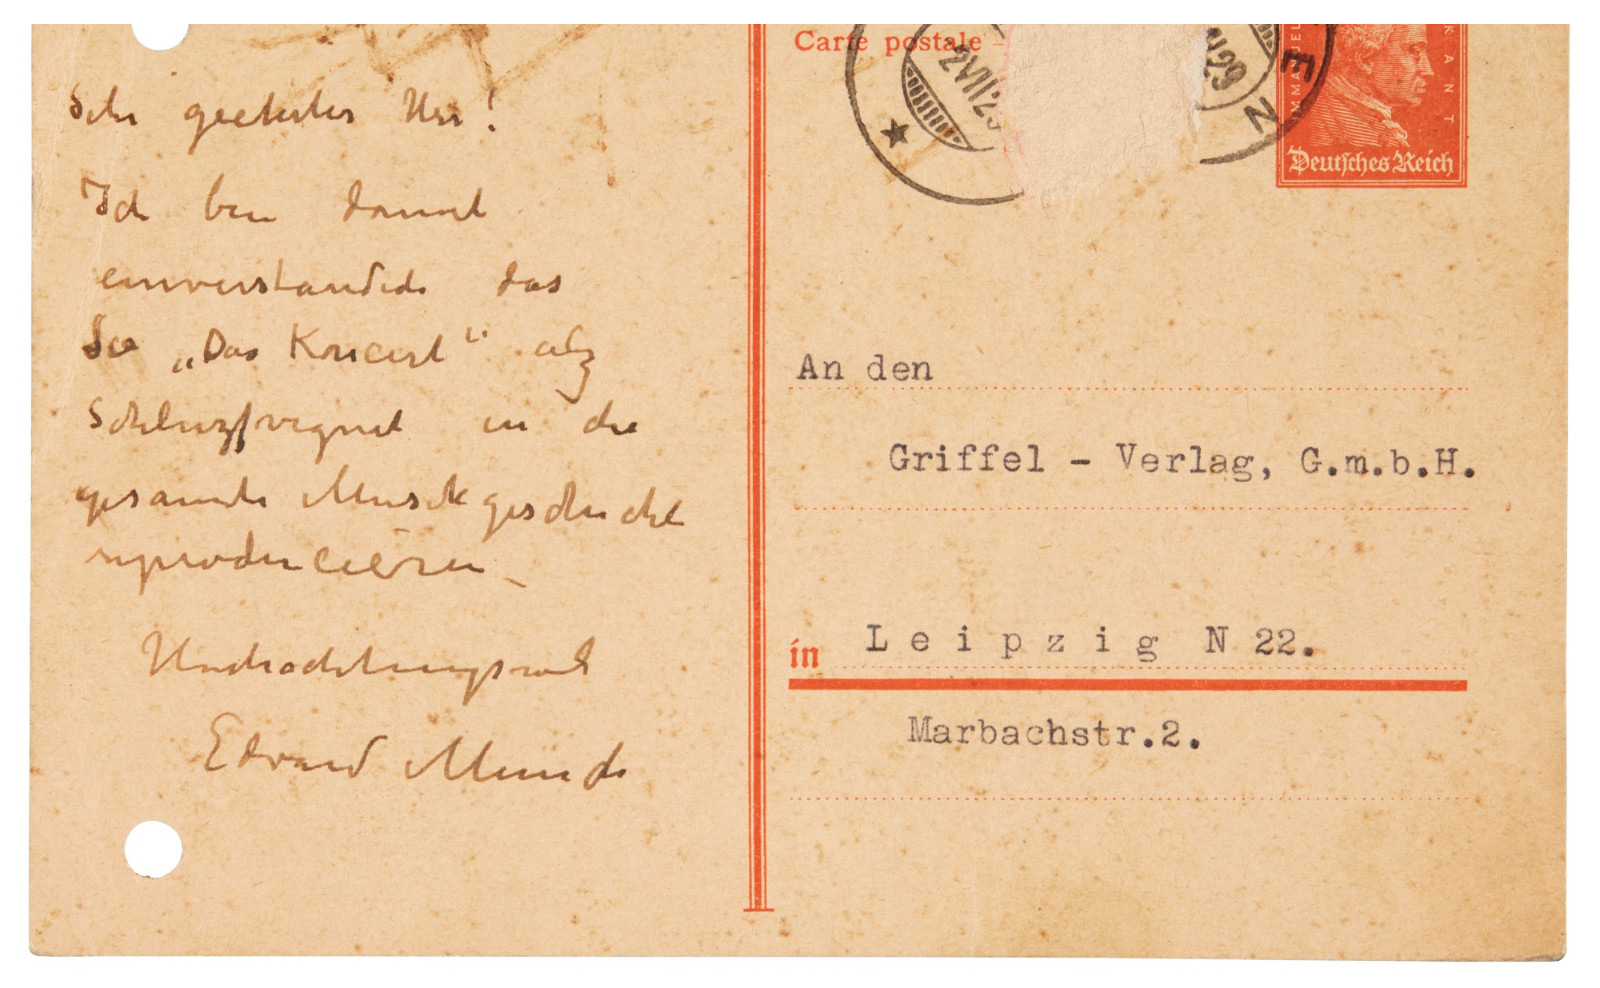 Sehr geehrter Herr!
Ich bin damit
einverstanden das
Sie „Das Koncert“ als
Schluszvignet in die
gesamte Musikgeschichte
reproducieren
Hochachtungsvoll
Edvard Munch
Carte postale
2 VII 2
29
E N
IMMANUEL KANT
Deutsches Reich
An den
Griffel - Verlag, G.m.b.H.
in Leipzig N 22.
Marbachstr.2.